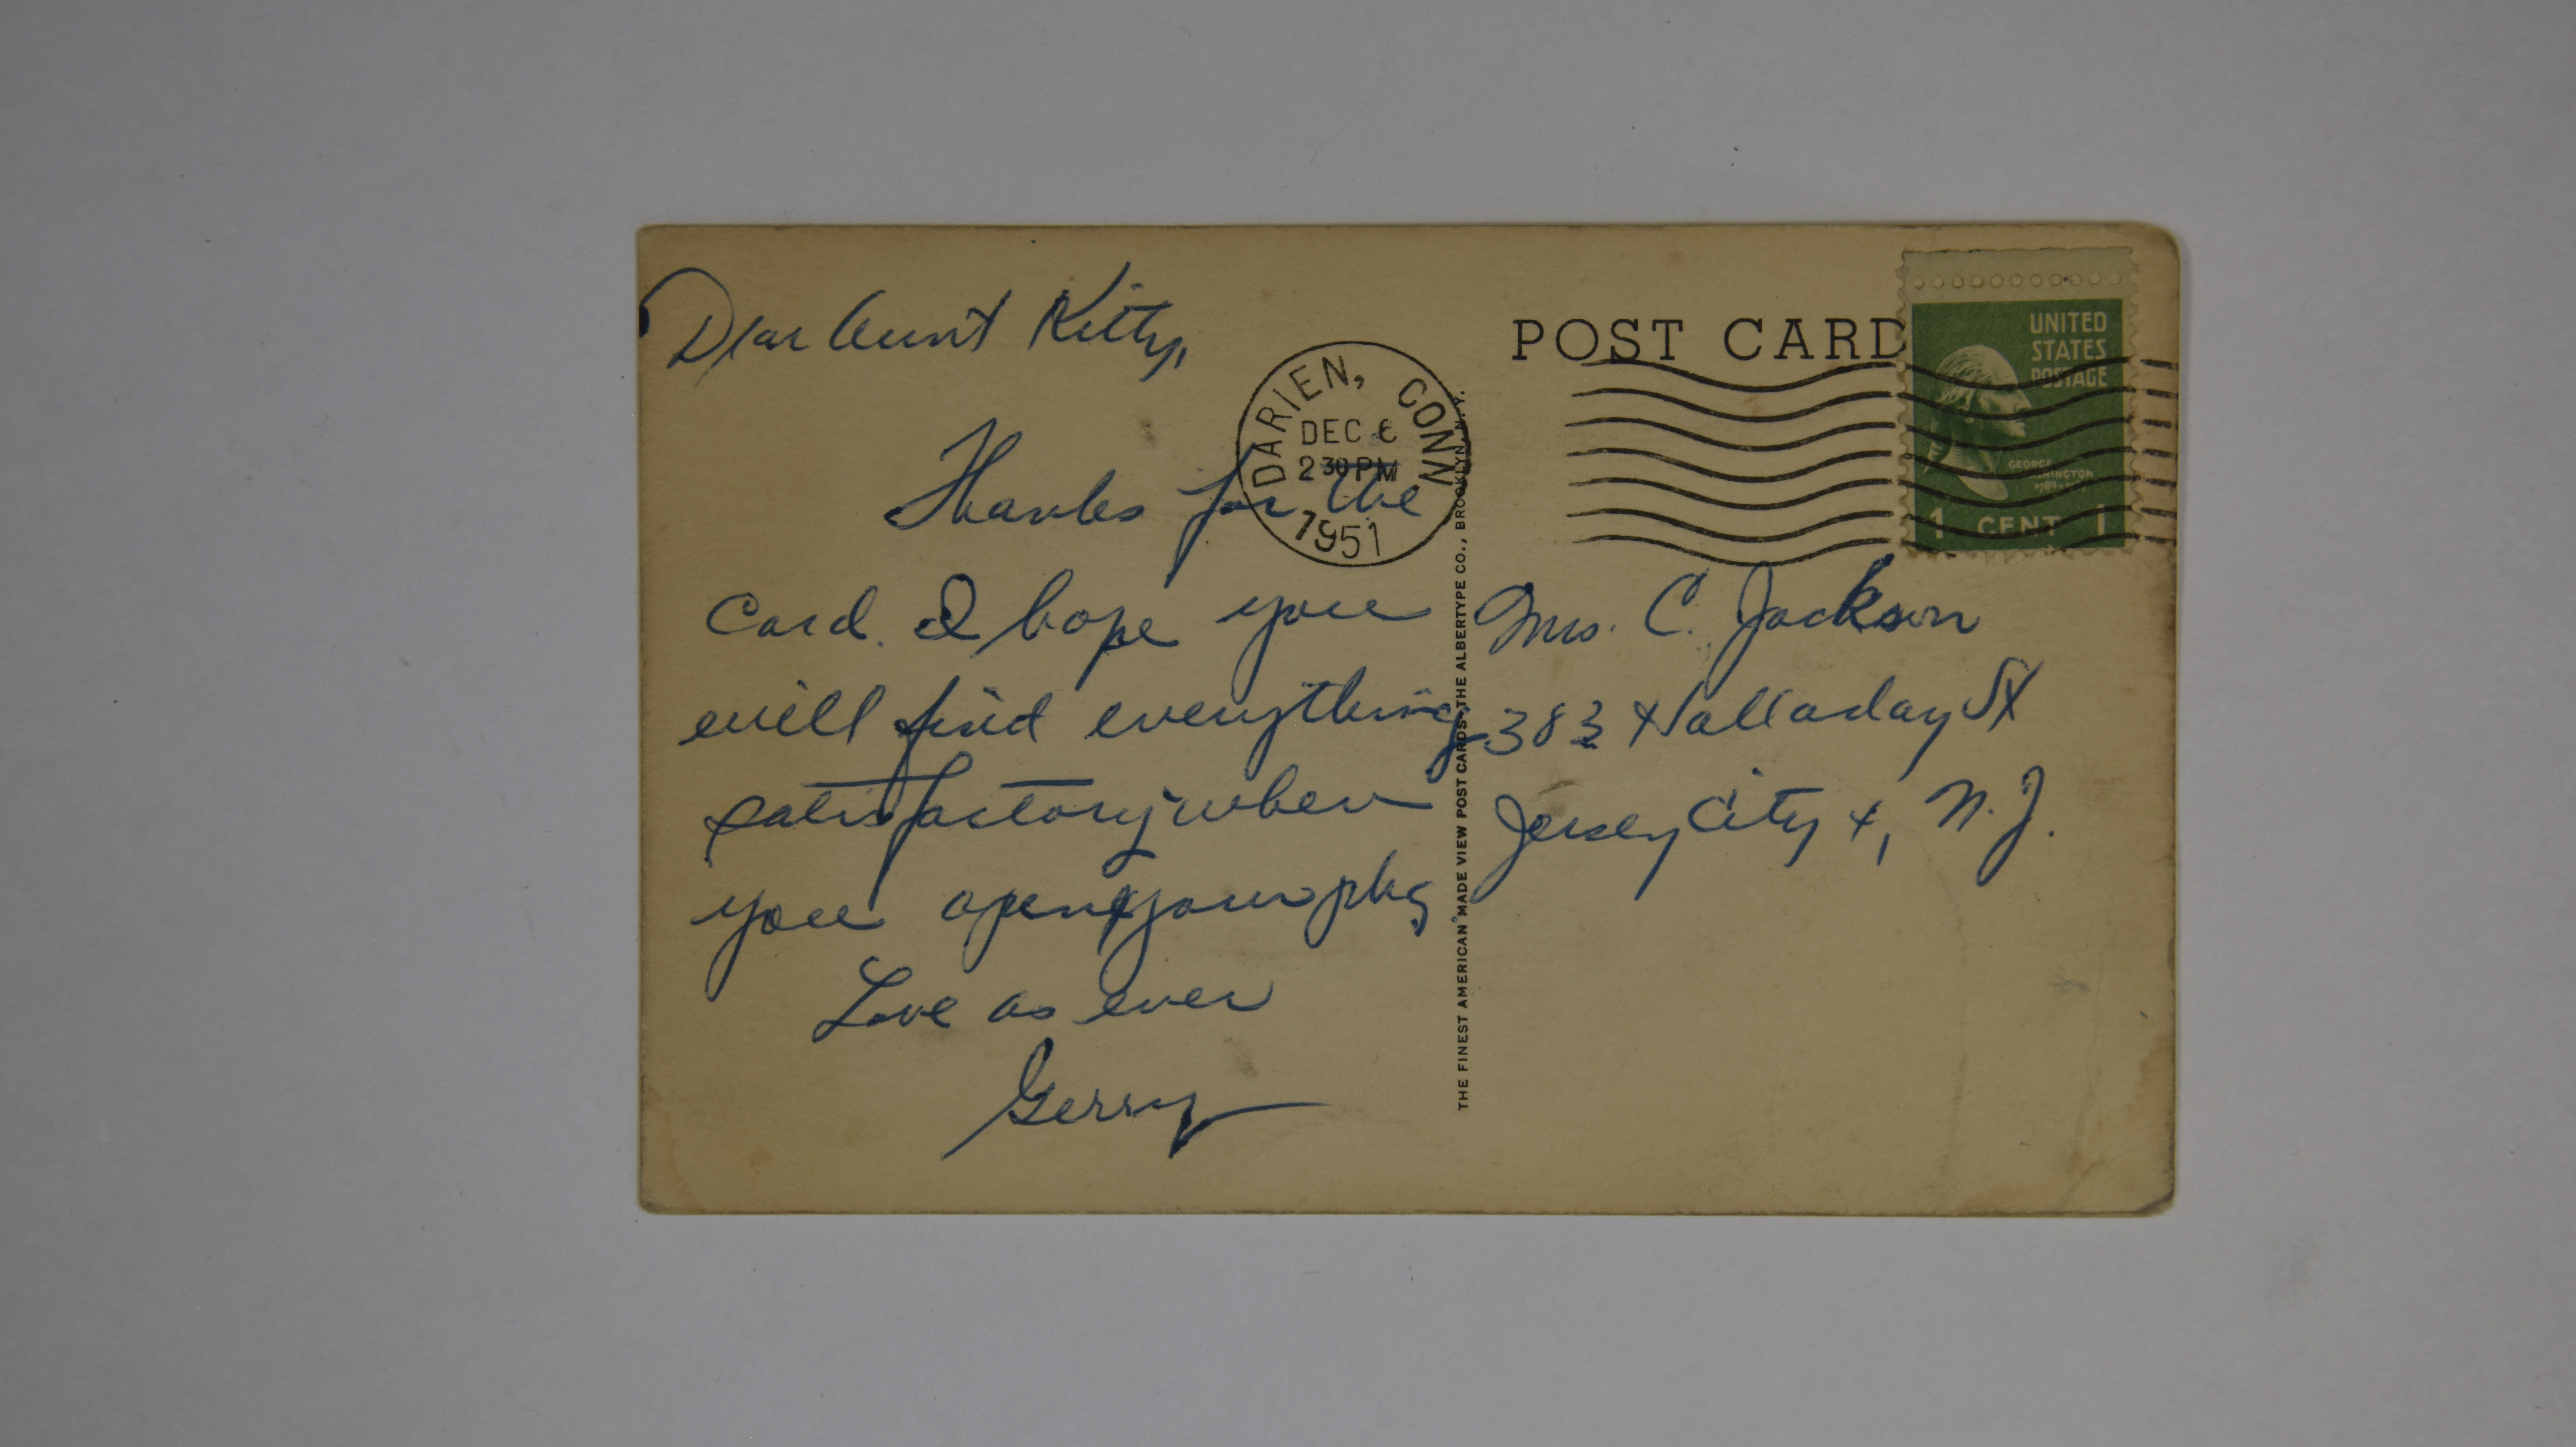 Dear Aunt Kitty,
Thanks for the
Card. I hope you
will find everything
satisfactory when
you open your pkg.
Love as ever
Gerry
DARIEN, CONN.
DEC 6
2 30 PM
1951
THE FINEST AMERICAN MADE VIEW POST CARDS THE ALBERTYPE CO., BROOKLYN, N.Y.
POST CARD
UNITED
STATES
POSTAGE
GEORGE
1 CENT 1
Mrs. C. Jackson
383 Halladay St
Jersey City 4, N.J.